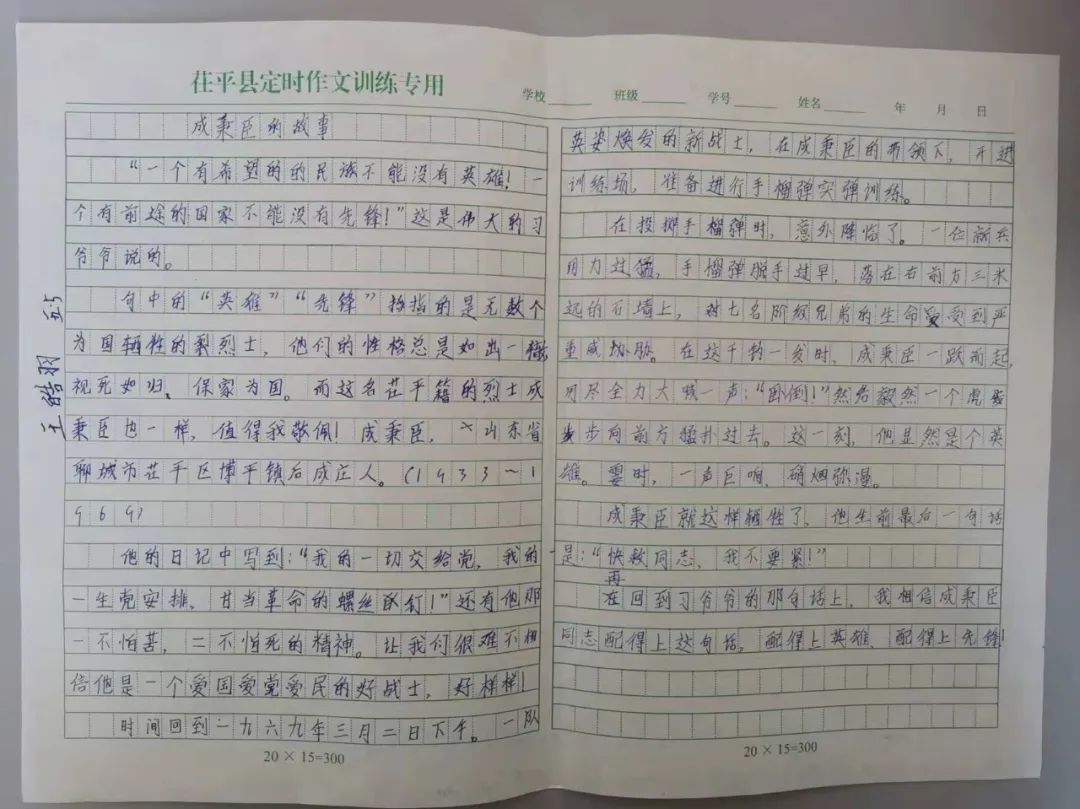 茌平县定时作文训练专用
学校 班级 学号 姓名 年 月 日
王皓羽 五5
成秉臣的故事
“一个有希望的的民族不能没有英雄！一
个有前途的国家不能没有先锋！”这是伟大的习
爷爷说的。
句中的“英雄”“先锋”指的是无数个
为国牺牲的烈士，他们的性格总是如出一辙
视死如归、保家为国。而这名茌平籍的烈士成
秉臣也一样，值得我敬佩！成秉臣，山东省
聊城市茌平区博平镇后成庄人。（1933～1
969）
他的日记中写到：“我的一切交给党，我的
一生党安排，甘当革命的螺丝钉！”还有他那
一不怕苦，二不怕死的精神。让我们很难不相
信他是一个爱国爱党爱民的好战士，好榜样！
时间回到一九六九年三月二日下午。一队
20 × 15=300
英姿焕发的新战士，在成秉臣的带领下，开进
训练场，准备进行手榴弹实弹训练。
在投掷手榴弹时，意外降临了。一位新兵
用力过猛，手榴弹脱手过早，落在右前方三米
远的石墙上，对七名阶级兄弟的生命受到严
重威胁。在这千钧一发时，成秉臣一跃而起，
用尽全力大喊一声：“卧倒！”然后毅然一个虎
步向前方猛扑过去。这一刻，他显然是个英
雄。霎时，一声巨响，硝烟弥漫。
成秉臣就这样牺牲了，他生前最后一句话
是：“快救同志，我不要紧！”
再在回到习爷爷的那句话上，我相信成秉臣
同志配得上这句话，配得上英雄、配得上先锋！
20 × 15=300